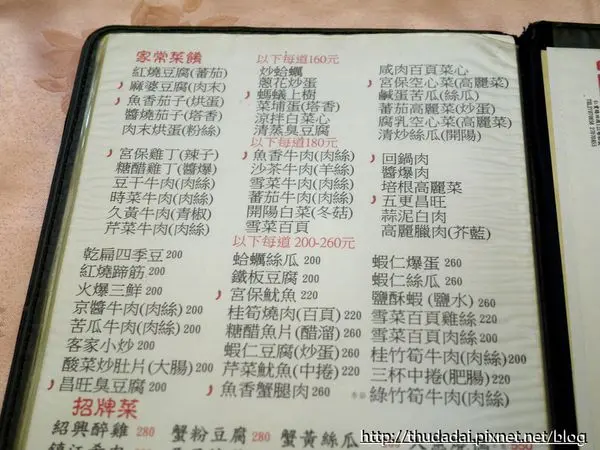 家常菜餚
以下每道160元
紅燒豆腐(蕃茄)
炒蛤蠣
咸肉百頁菜心
麻婆豆腐(肉末)
蔥花炒蛋
宮保空心菜(高麗菜)
魚香茄子(烘蛋)
螞蟻上樹
鹹蛋苦瓜(絲瓜)
醬燒茄子(塔香)
菜埔蛋(塔香)
蕃茄高麗菜(炒蛋)
肉末烘蛋(粉絲)
涼拌白菜心
腐乳空心菜(高麗菜)
清蒸臭豆腐
清炒絲瓜(開陽)
以下每道180元
宮保雞丁(辣子)
魚香牛肉(肉絲)
回鍋肉
糖醋雞丁(醬爆)
沙茶牛肉(羊絲)
醬爆肉
豆干牛肉(肉絲)
雪菜牛肉(肉絲)
培根高麗菜
時菜牛肉(肉絲)
蕃茄牛肉(肉絲)
五更昌旺
久黃牛肉(青椒)
開陽白菜(冬菇)
蒜泥白肉
芹菜牛肉(肉絲)
雪菜百頁
高麗臘肉(芥藍)
以下每道 200-260元
乾扁四季豆 200
蛤蠣絲瓜 200
蝦仁爆蛋 260
紅燒蹄筋 200
鐵板豆腐 200
蝦仁絲瓜 260
火爆三鮮 200
宮保魷魚 220
鹽酥蝦 (鹽水) 260
京醬牛肉(肉絲) 200
桂筍燒肉(百頁) 220
雪菜百頁雞絲 220
苦瓜牛肉(肉絲) 200
糖醋魚片(醋溜) 260
雪菜百頁肉絲 200
客家小炒 200
蝦仁豆腐(炒蛋) 260
桂竹筍牛肉(肉絲) 200
酸菜炒肚片(大腸) 200
芹菜魷魚(中捲) 220
三杯中捲(肥腸) 220
昌旺臭豆腐 200
魚香蟹腿肉 260
綠竹筍牛肉(肉絲)
招牌菜
紹興醉雞 280
蟹粉豆腐 280
蟹黃絲瓜
http://thudadai.pixnet.net/blog